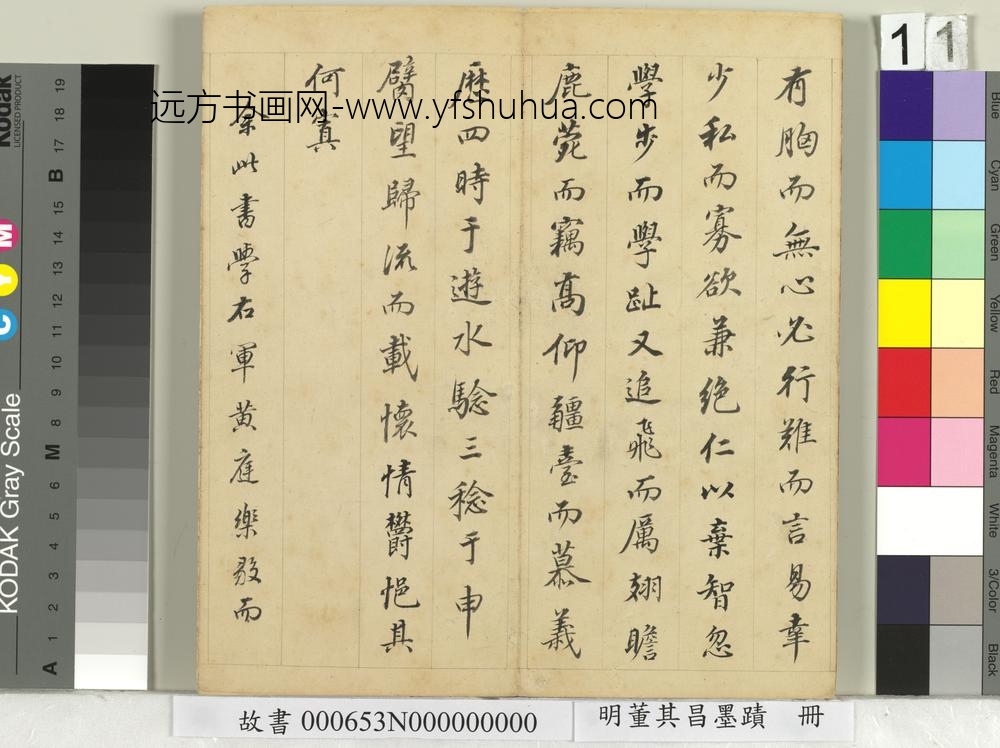 有胸而無心必行難而言易幸
少私而寡欲兼絶仁以棄智忽
學步而學趾又追飛而厲瞻
鹿菀而竊高仰疆臺而慕義
歷四時于遊水騐三稔于申
臂望歸流而載懷情欝悒其
何寘
余此書學右軍黃庭樂毅而
远方书画网-www.yfshuhua.com
故書 000653N000000000
明董其昌墨蹟 冊
11
KODAK Gray Scale
Kodak
LICENSED PRODUCT
C Y M
A 1 2 3 4 5 6 M 8 9 10 11 12 13 14 15 B 17 18 19
Blue
Cyan
Green
Yellow
Red
Magenta
White
3/Color
Black